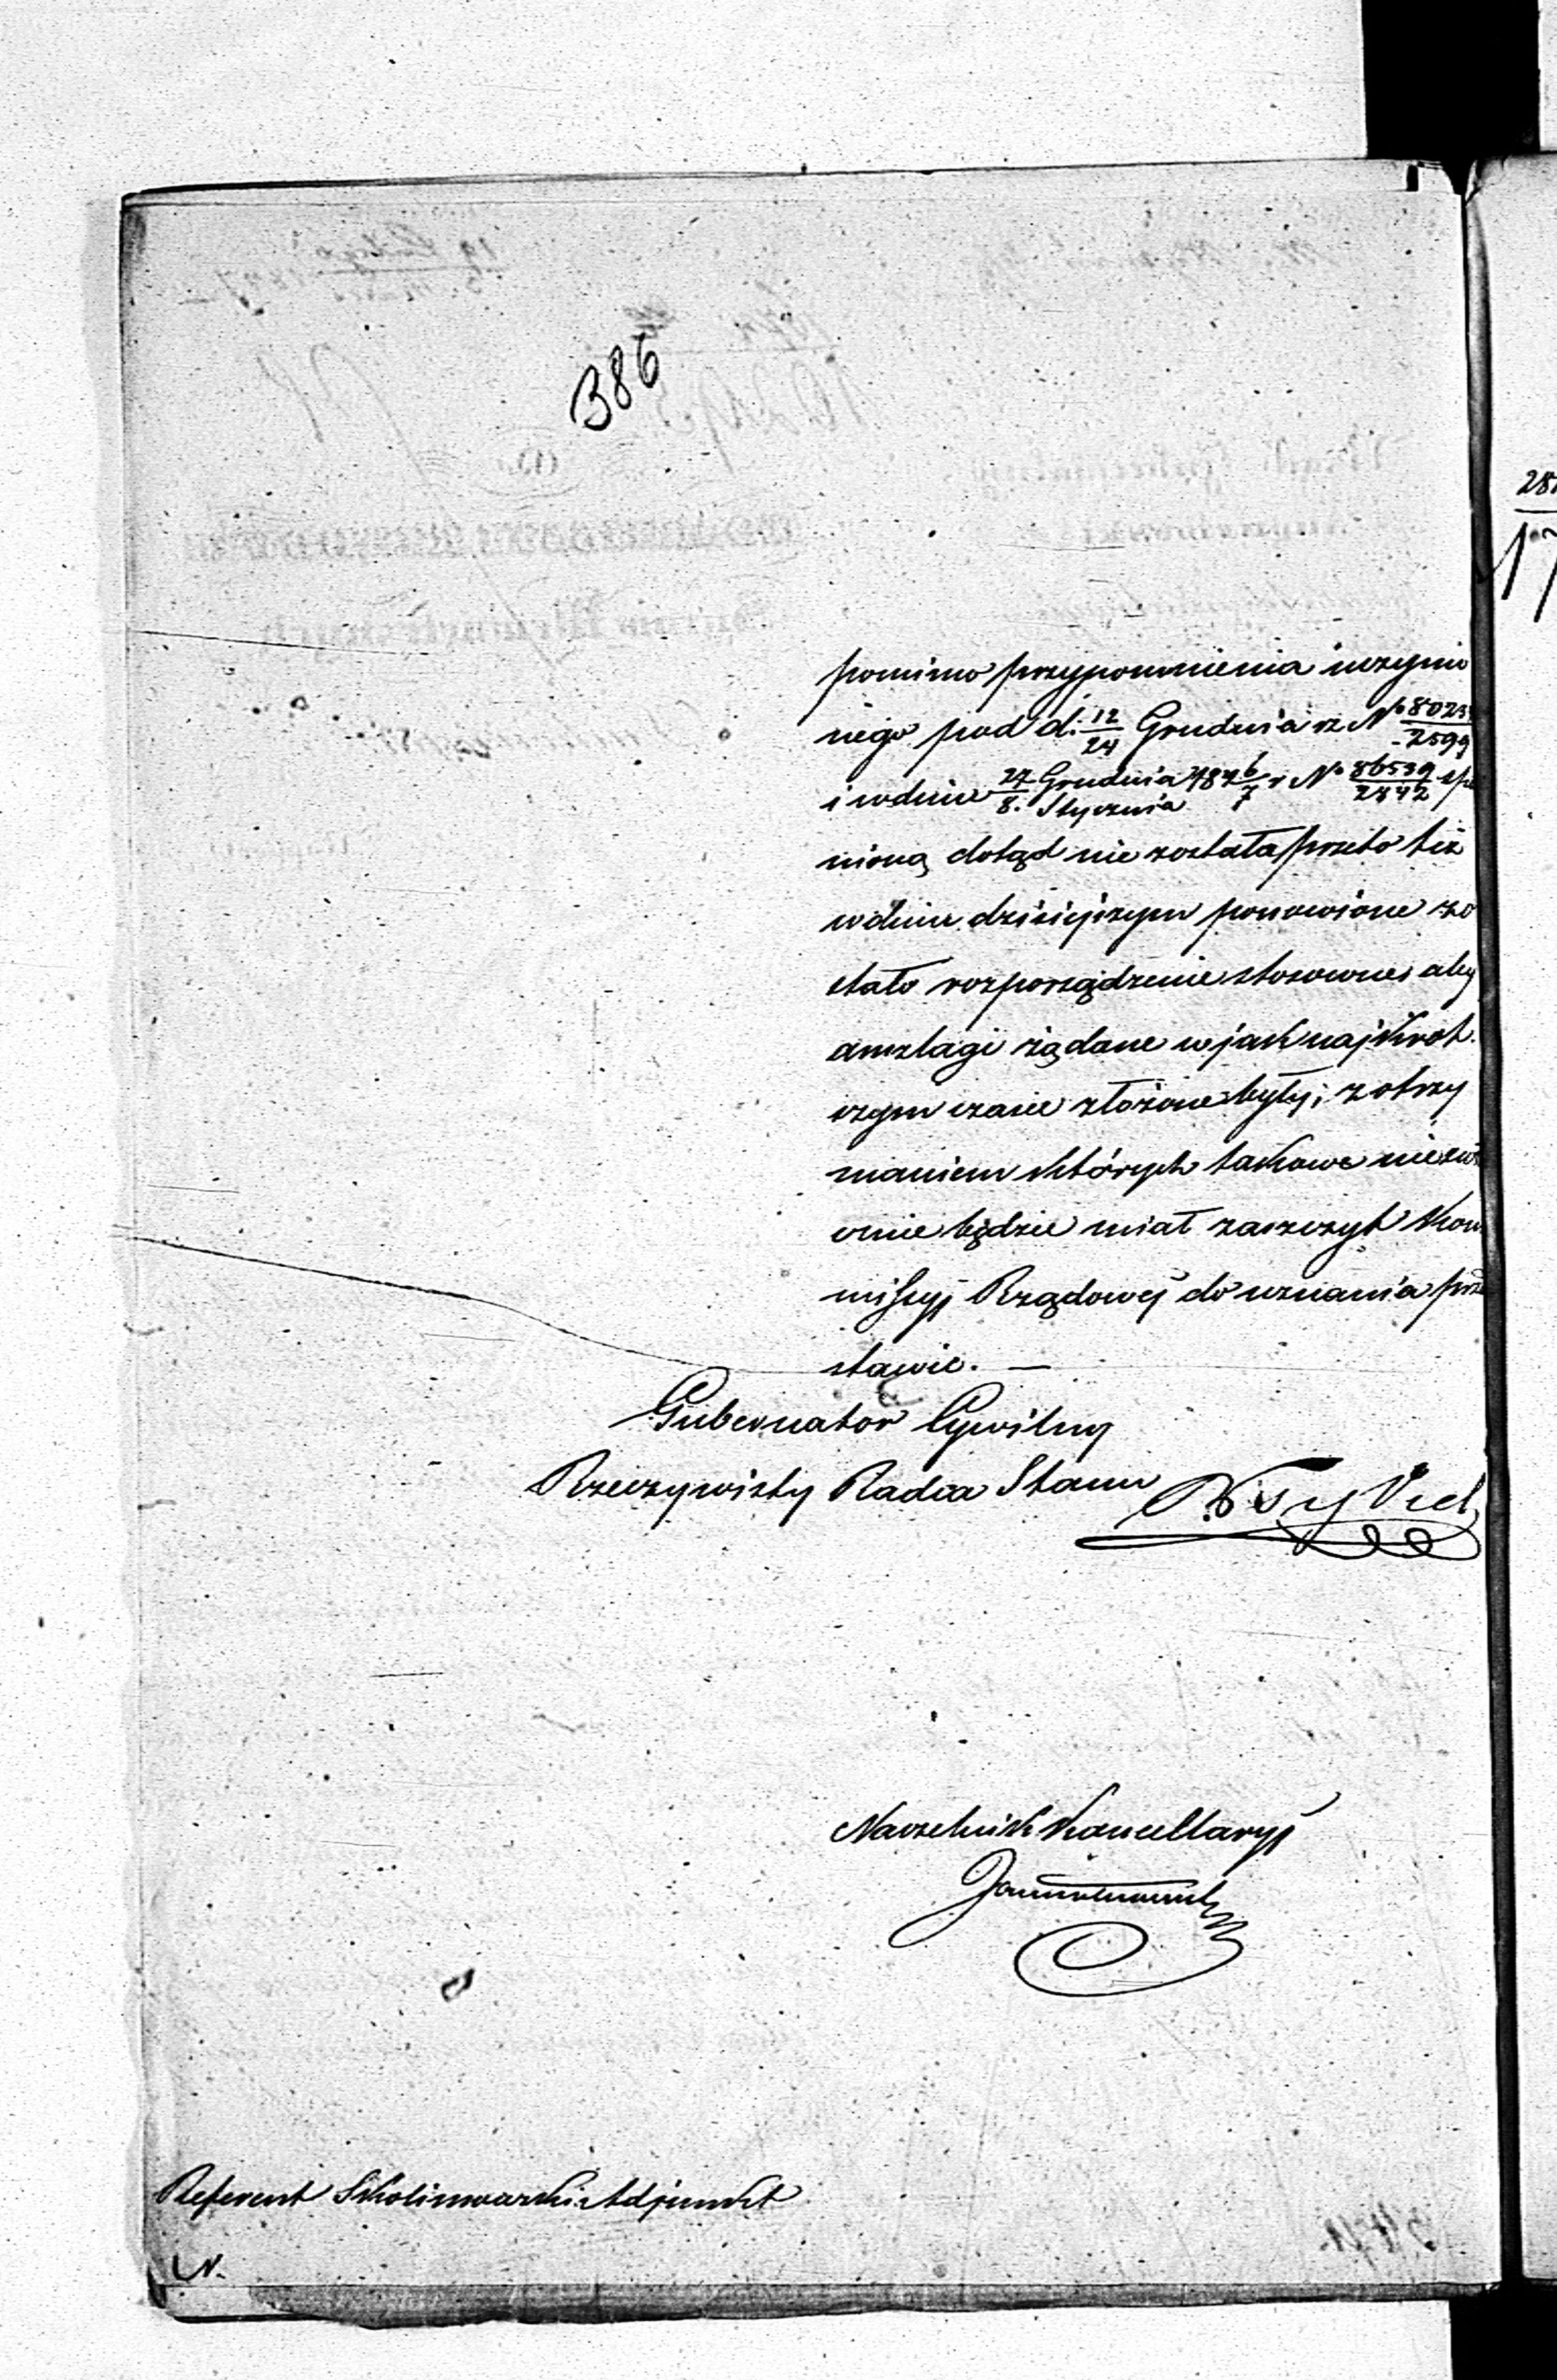 386
pomimo przypomnienia uczynio
nego pod d. 12/24 Grudnia r. z. No 8023
2599
i w dniu 27 Grudnia/8. Stycznia 1846/7 r. No 86539/2842 speł
nioną dotąd nie została przeto też
w dniu dzisiejszym ponowione zo
stało rozporządzenie stosowne, aby
anszlagi żądane w jak najkrót.
szym czasie złożone były; z otrzy
maniem których takowe niezwł
cznie będzie miał zaszczyt Kom
missyj Rządowej do uznania prze
stawić. —
Gubernator Cywilny
Rzeczywisty Radca Stanu
Naczelnik Kancellaryj
Referent Skolimowski Adjunkt
N.